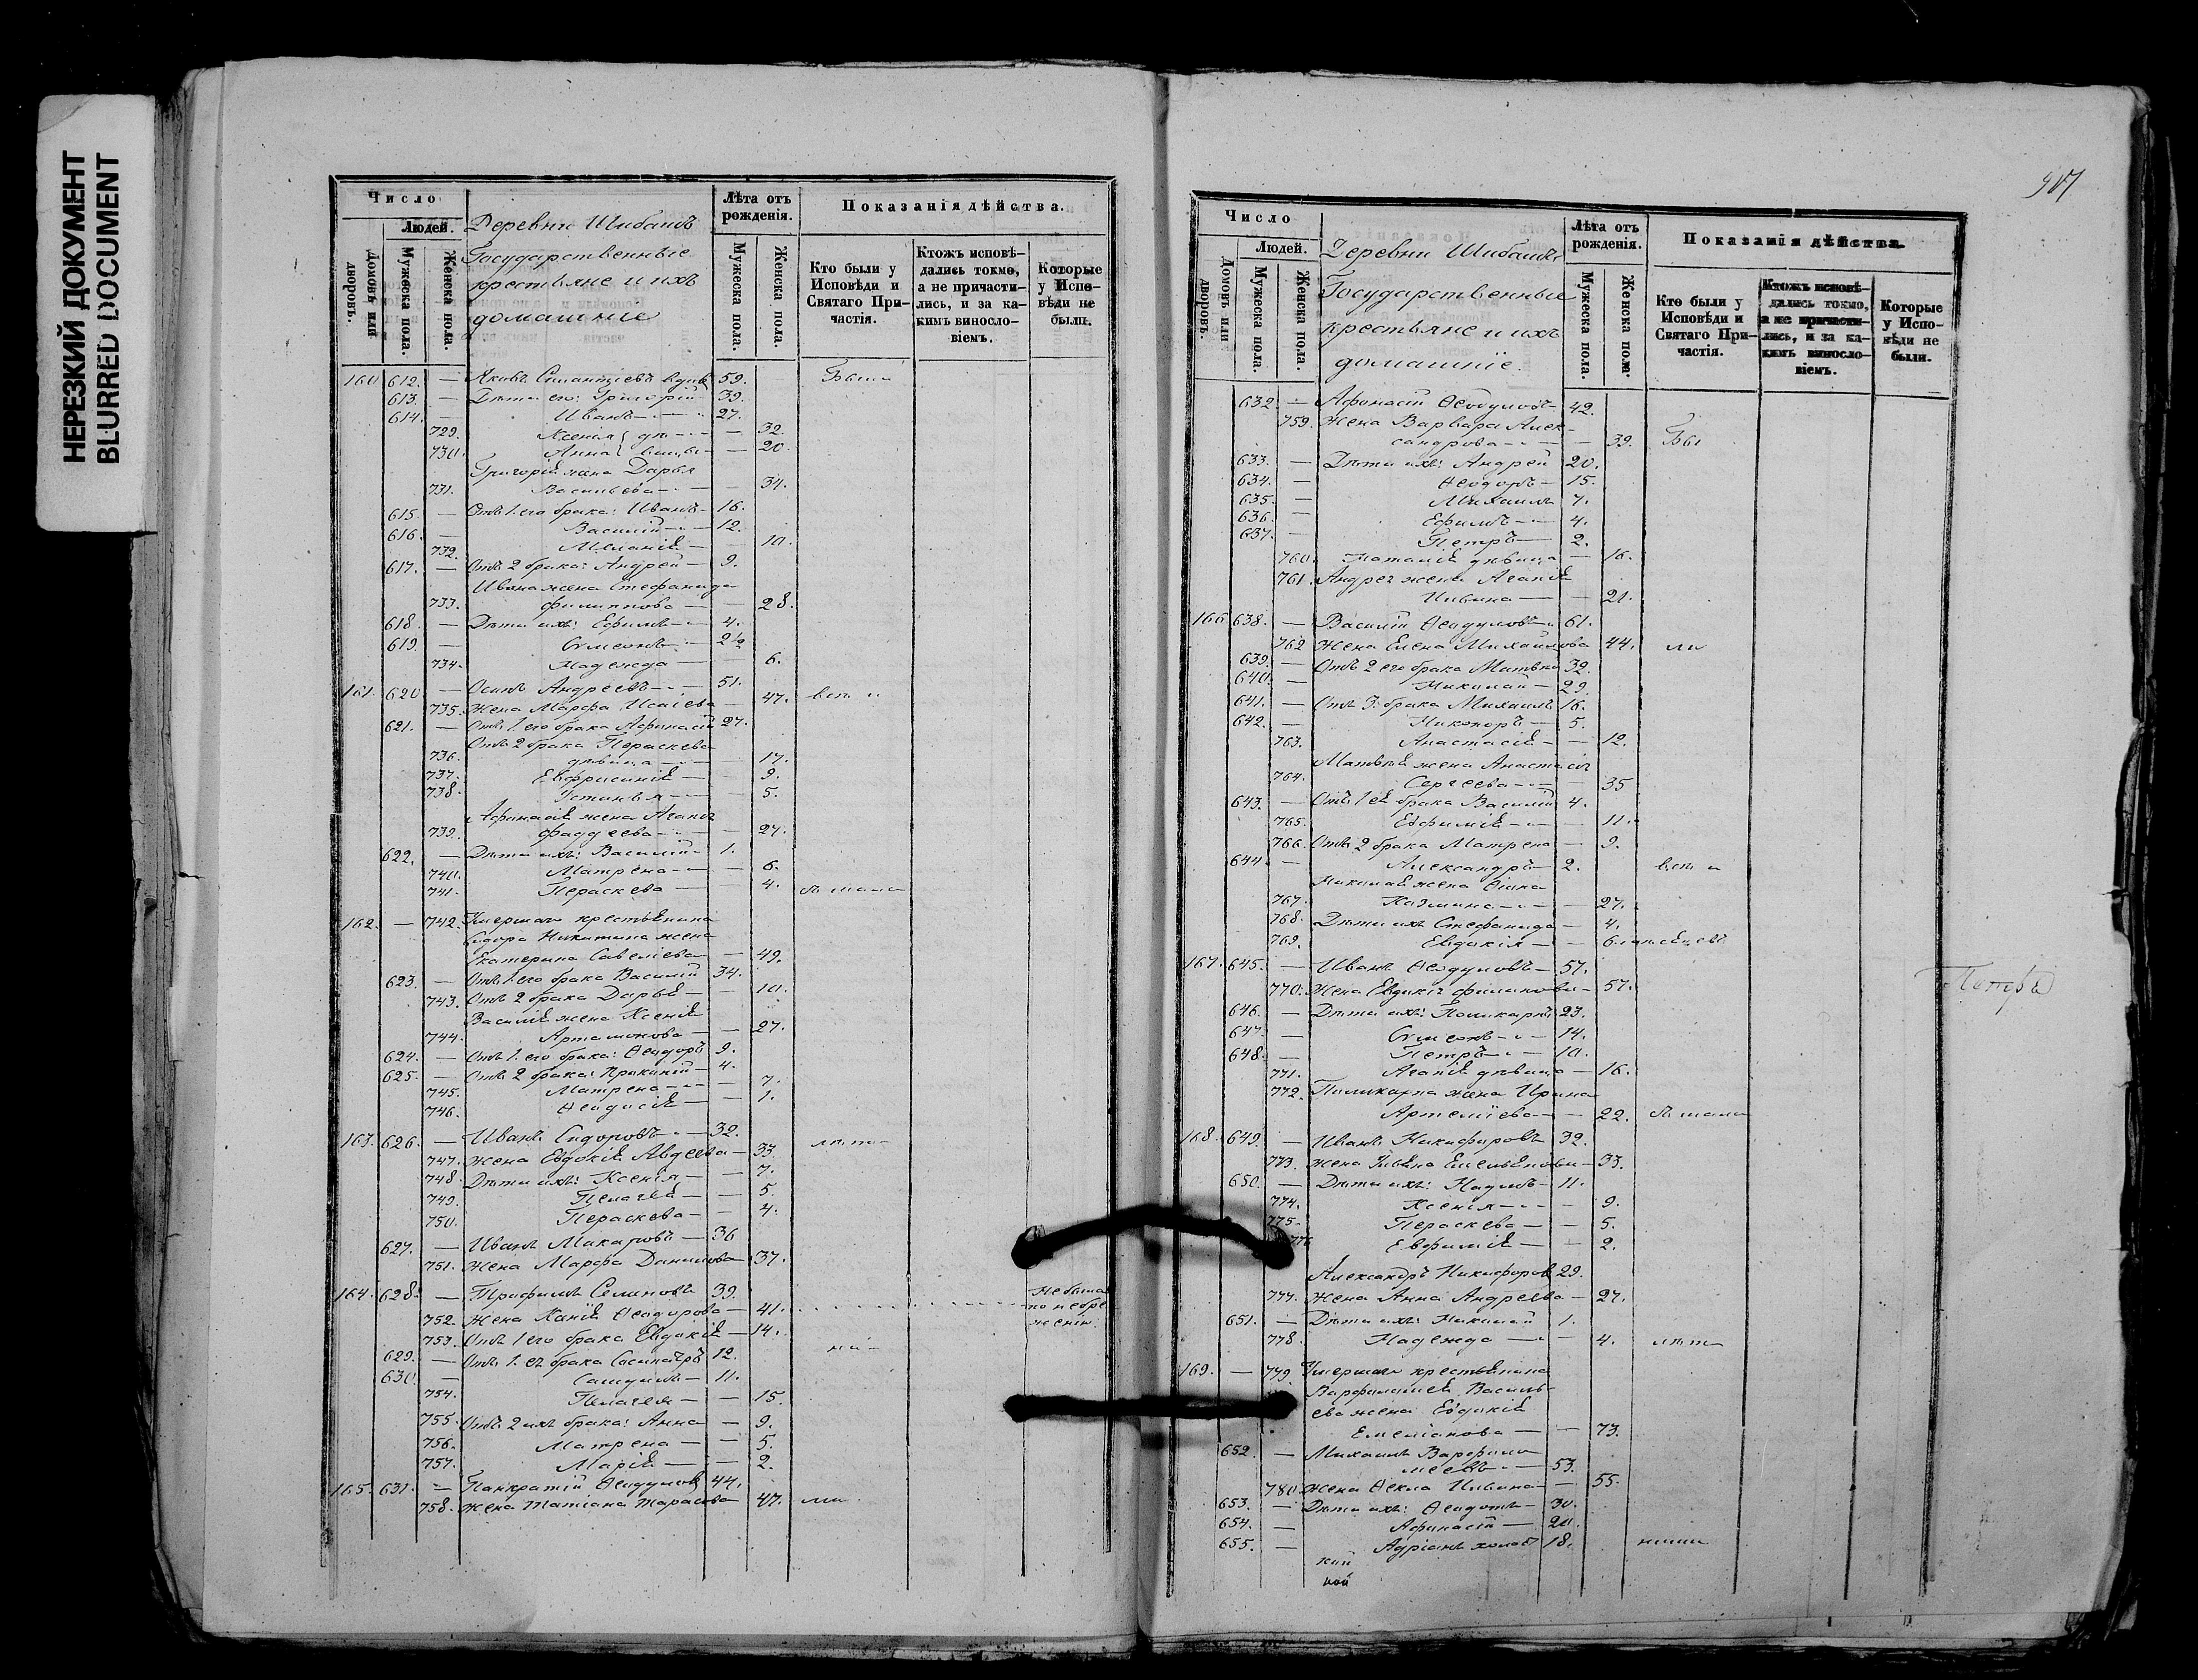 НЕРЕЗКИЙ ДОКУМЕНТ
BLURRED DOCUMENT
Число
Людей.
Домовъ или дворовъ.
Мужеска пола.
Женска пола.
Деревни
Государственные
крестьяне и ихъ
домашніе
Лѣта отъ рожденія.
Мужеска пола.
Женска пола.
Показанія дѣйства.
Кто были у Исповѣди и Святаго Причастія.
Ктожъ исповѣдались токмо, а не причастились, и за какимъ винословіемъ.
Которые у Исповѣди не были.
160 612. — Яковъ вдовъ 59.
613. — Дѣти его: Григорій 39.
614. — Иванъ 27.
729. Ксенія — 32.
730. Анна — 20.
Григорія жена Дарья
731. Васильева — 34.
615. — Отъ 1. его брака: Иванъ 16.
616. — Василій 12.
732. Меланія — 10.
617. — Отъ 2 брака: Андрей 9.
Ивана жена Стефанида
733. Филиппова — 28.
618. — Дѣти ихъ: Ефимъ 4.
619. — Сѵмеонъ 2½
734. Надежда — 6.
161. 620 — Осипъ Андреевъ 51.
735. Жена Марфа Исаіева — 47.
621. — Отъ 1. его брака Афанасій 27.
Отъ 2 брака Параскева
736. дѣвица — 17.
737. Евфросинія — 9.
738. Устинья — 5.
Афанасія жена Агапія
739. Фаддеева — 27.
622. — Дѣти ихъ: Василій 1.
740. Матрена — 6.
741. Параскева — 4.
162. — 742. Умершаго крестьянина
Сидора Никитина жена
Екатерина Савеліева — 49.
623. — Отъ 1. его брака Василій 34.
743. Отъ 2 брака Дарья — 10.
Василія жена Ксенія
744. Артамонова — 27.
624. — Отъ 1. его брака: Ѳеодоръ 9.
625. — Отъ 2 брака: 4.
745. Матрена — 7.
746. Ѳеодосія — 1.
163. 626. — Иванъ Сидоровъ 32.
747. Жена Евдокія Авдеева — 33.
748. Дѣти ихъ: Ксенія — 7.
749. Пелагея — 5.
750. Параскева — 4.
627. — Иванъ Макаровъ 36
751. Жена Марфа Данилова 37.
164. 628. — Трофимъ 39.
752. Жена Ѳеодорова — 41.
753. Отъ 1 его брака Евдокія — 14.
629. — Отъ 1. ея брака 12.
630. — Самуилъ 11.
754. Пелагея — 15.
755. Отъ 2 ихъ брака: Анна — 9.
756. Матрена — 5.
757. Марія — 2.
165. 631. — Панкратій Ѳеодуловъ 44.
758. Жена Татіана Тарасова 47.
Не были
по небре
женію.
Число
Людей.
Домовъ или дворовъ.
Мужеска пола.
Женска пола.
Деревни
Государственные
крестьяне и ихъ
домашніе.
Лѣта отъ рожденія.
Мужеска пола.
Женска пола.
Показанія дѣйства.
Кто были у Исповѣди и Святаго Причастія.
Ктожъ исповѣдались токмо, а не причастились, и за какимъ винословіемъ.
Которые у Исповѣди не были.
632. — Афанасій Ѳеодуловъ 42.
759. Жена Варвара Алек-
сандрова — 39.
633. — Дѣти ихъ: Андрей 20.
634. — Ѳеодоръ 15.
635. — Михаилъ 7.
636. — Ефимъ 4.
637. — Петръ 2.
760. Наталія дѣвица — 16.
761. Андрея жена Агапія
Ильина — 21.
166 638. — Василій Ѳеодуловъ 61.
762 Жена Елена Михайлова 44.
639. — Отъ 2 его брака Матвѣй 32.
640. — Николай 29.
641. — Отъ 3. брака Михаилъ 16.
642. — Никоноръ 5.
763. Анастасія — 12.
Матвѣя жена Анастасія
764. Сергеева — 35
643. — Отъ 1 ея брака Василій 4.
765. Евфимія — 11.
766. Отъ 2 брака Матрена — 9.
644. — Александръ 2.
Николая жена
767. — 27.
768. Дѣти ихъ Стефанида — 4.
769. Евдокія — 6
167. 645. — Иванъ Ѳеодуловъ 57.
770. Жена Евдокія 57.
646. — Дѣти ихъ: Поликарпъ 23.
647. — Сѵмеонъ 14.
648. — Петръ 10.
771. Агапія дѣвица — 16.
772. Поликарпа жена Ирина
Артеміева — 22.
168. 649. — Иванъ Никифоровъ 32.
773. Жена Ульяна Емельянова 33.
650. — Дѣти ихъ: Наумъ 11.
774. Ксенія — 9.
775. Параскева — 5.
776 Евфимія — 2.
Александръ Никифоровъ 29.
777. Жена Анна Андреева — 27.
651. — Дѣти ихъ: Николай 1.
778. Надежда — 4.
169. — 779 Умершаго крестьянина
Варфоломея Василь-
ева жена Евдокія
Емеліанова — 73.
652. — Михаилъ Варфоло
меевъ 53.
780. Жена Ѳекла Ильина — 55.
653. — Дѣти ихъ: Ѳеодотъ 30.
654. — Афанасій 20.
655. — Адріанъ 18.